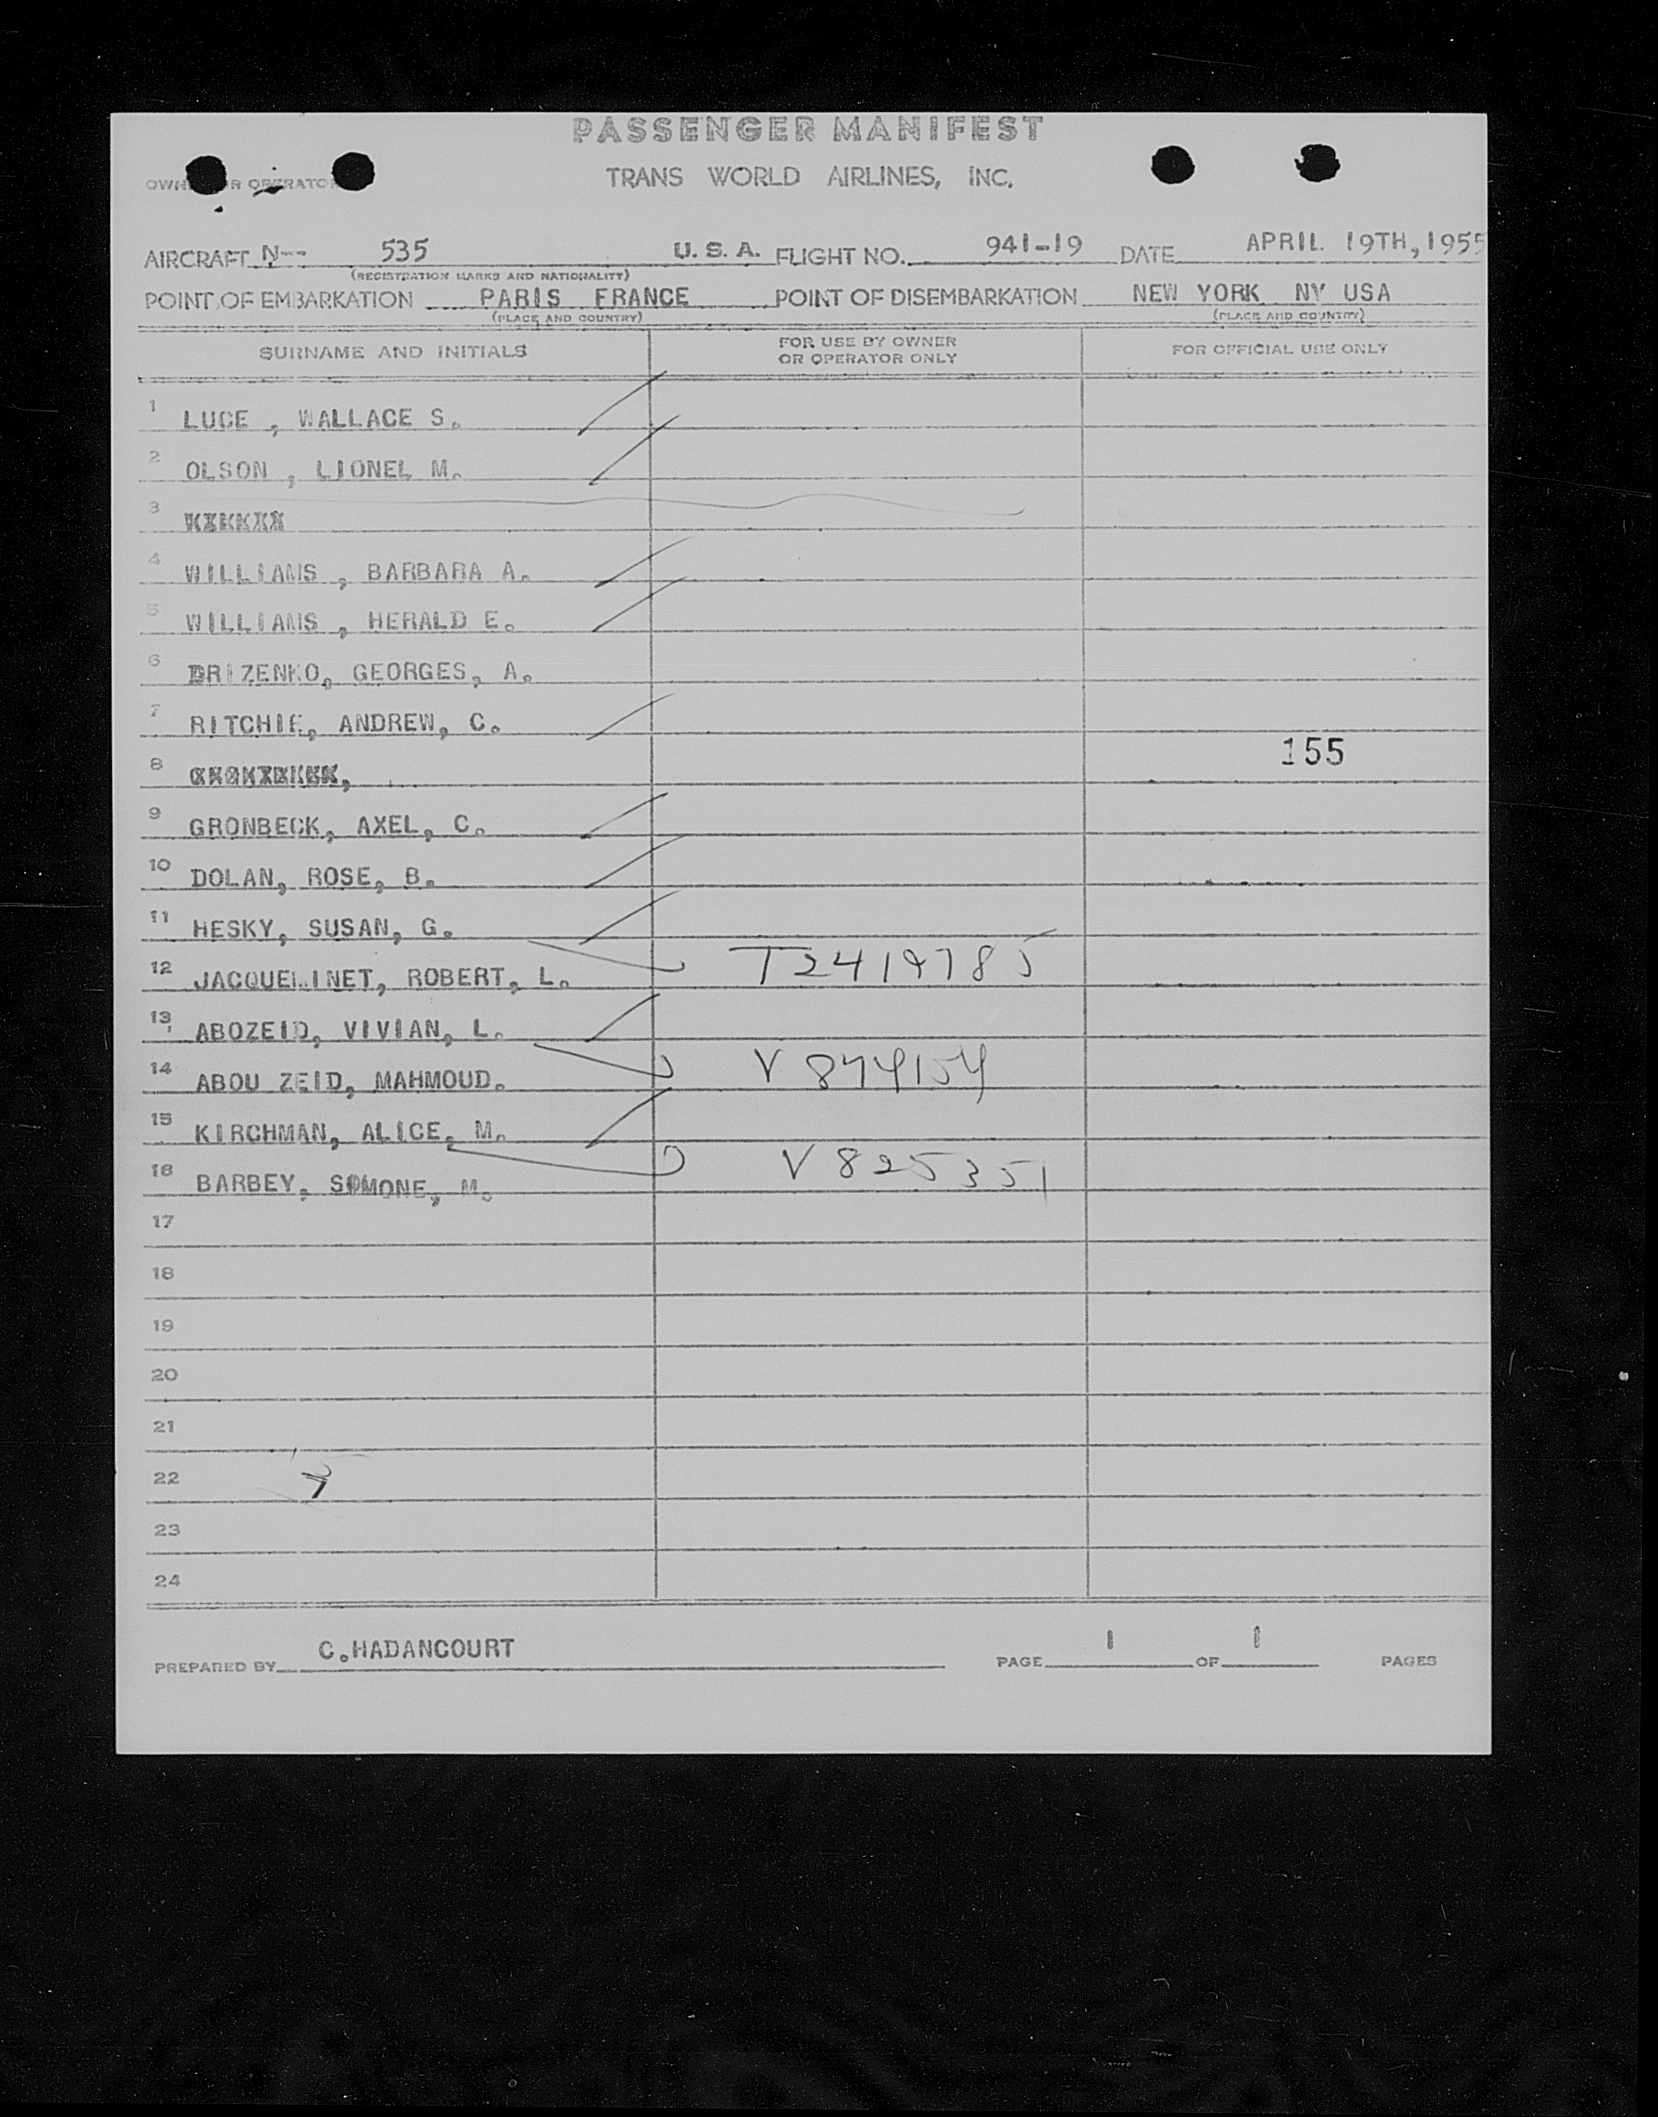 PASSENGER MANIFEST
OWNER OR OPERATOR TRANS WORLD AIRLINES, INC.
AIRCRAFT N-- 535 U. S. A. FLIGHT NO. 941-19 DATE APRIL 19TH, 1955
(REGISTRATION MARKS AND NATIONALITY)
POINT OF EMBARKATION PARIS FRANCE POINT OF DISEMBARKATION NEW YORK NY USA
(PLACE AND COUNTRY) (PLACE AND COUNTRY)
SURNAME AND INITIALS FOR USE BY OWNER OR OPERATOR ONLY FOR OFFICIAL USE ONLY
1 LUCE , WALLACE S.
2 OLSON , LIONEL M.
3
4 WILLIAMS , BARBARA A.
5 WILLIAMS , HERALD E.
6 DRIZENKO, GEORGES, A.
7 RITCHIE, ANDREW, C.
155
8
9 GRONBECK, AXEL, C.
10 DOLAN, ROSE, B.
11 HESKY, SUSAN, G.
12 JACQUELINET, ROBERT, L. T2419785
13 ABOZEID, VIVIAN, L.
14 ABOU ZEID, MAHMOUD.
15 KIRCHMAN, ALICE, M.
16 BARBEY, SIMONE, M. V 825351
17
18
19
20
21
22
23
24
PREPARED BY C.HADANCOURT PAGE 1 OF 1 PAGES